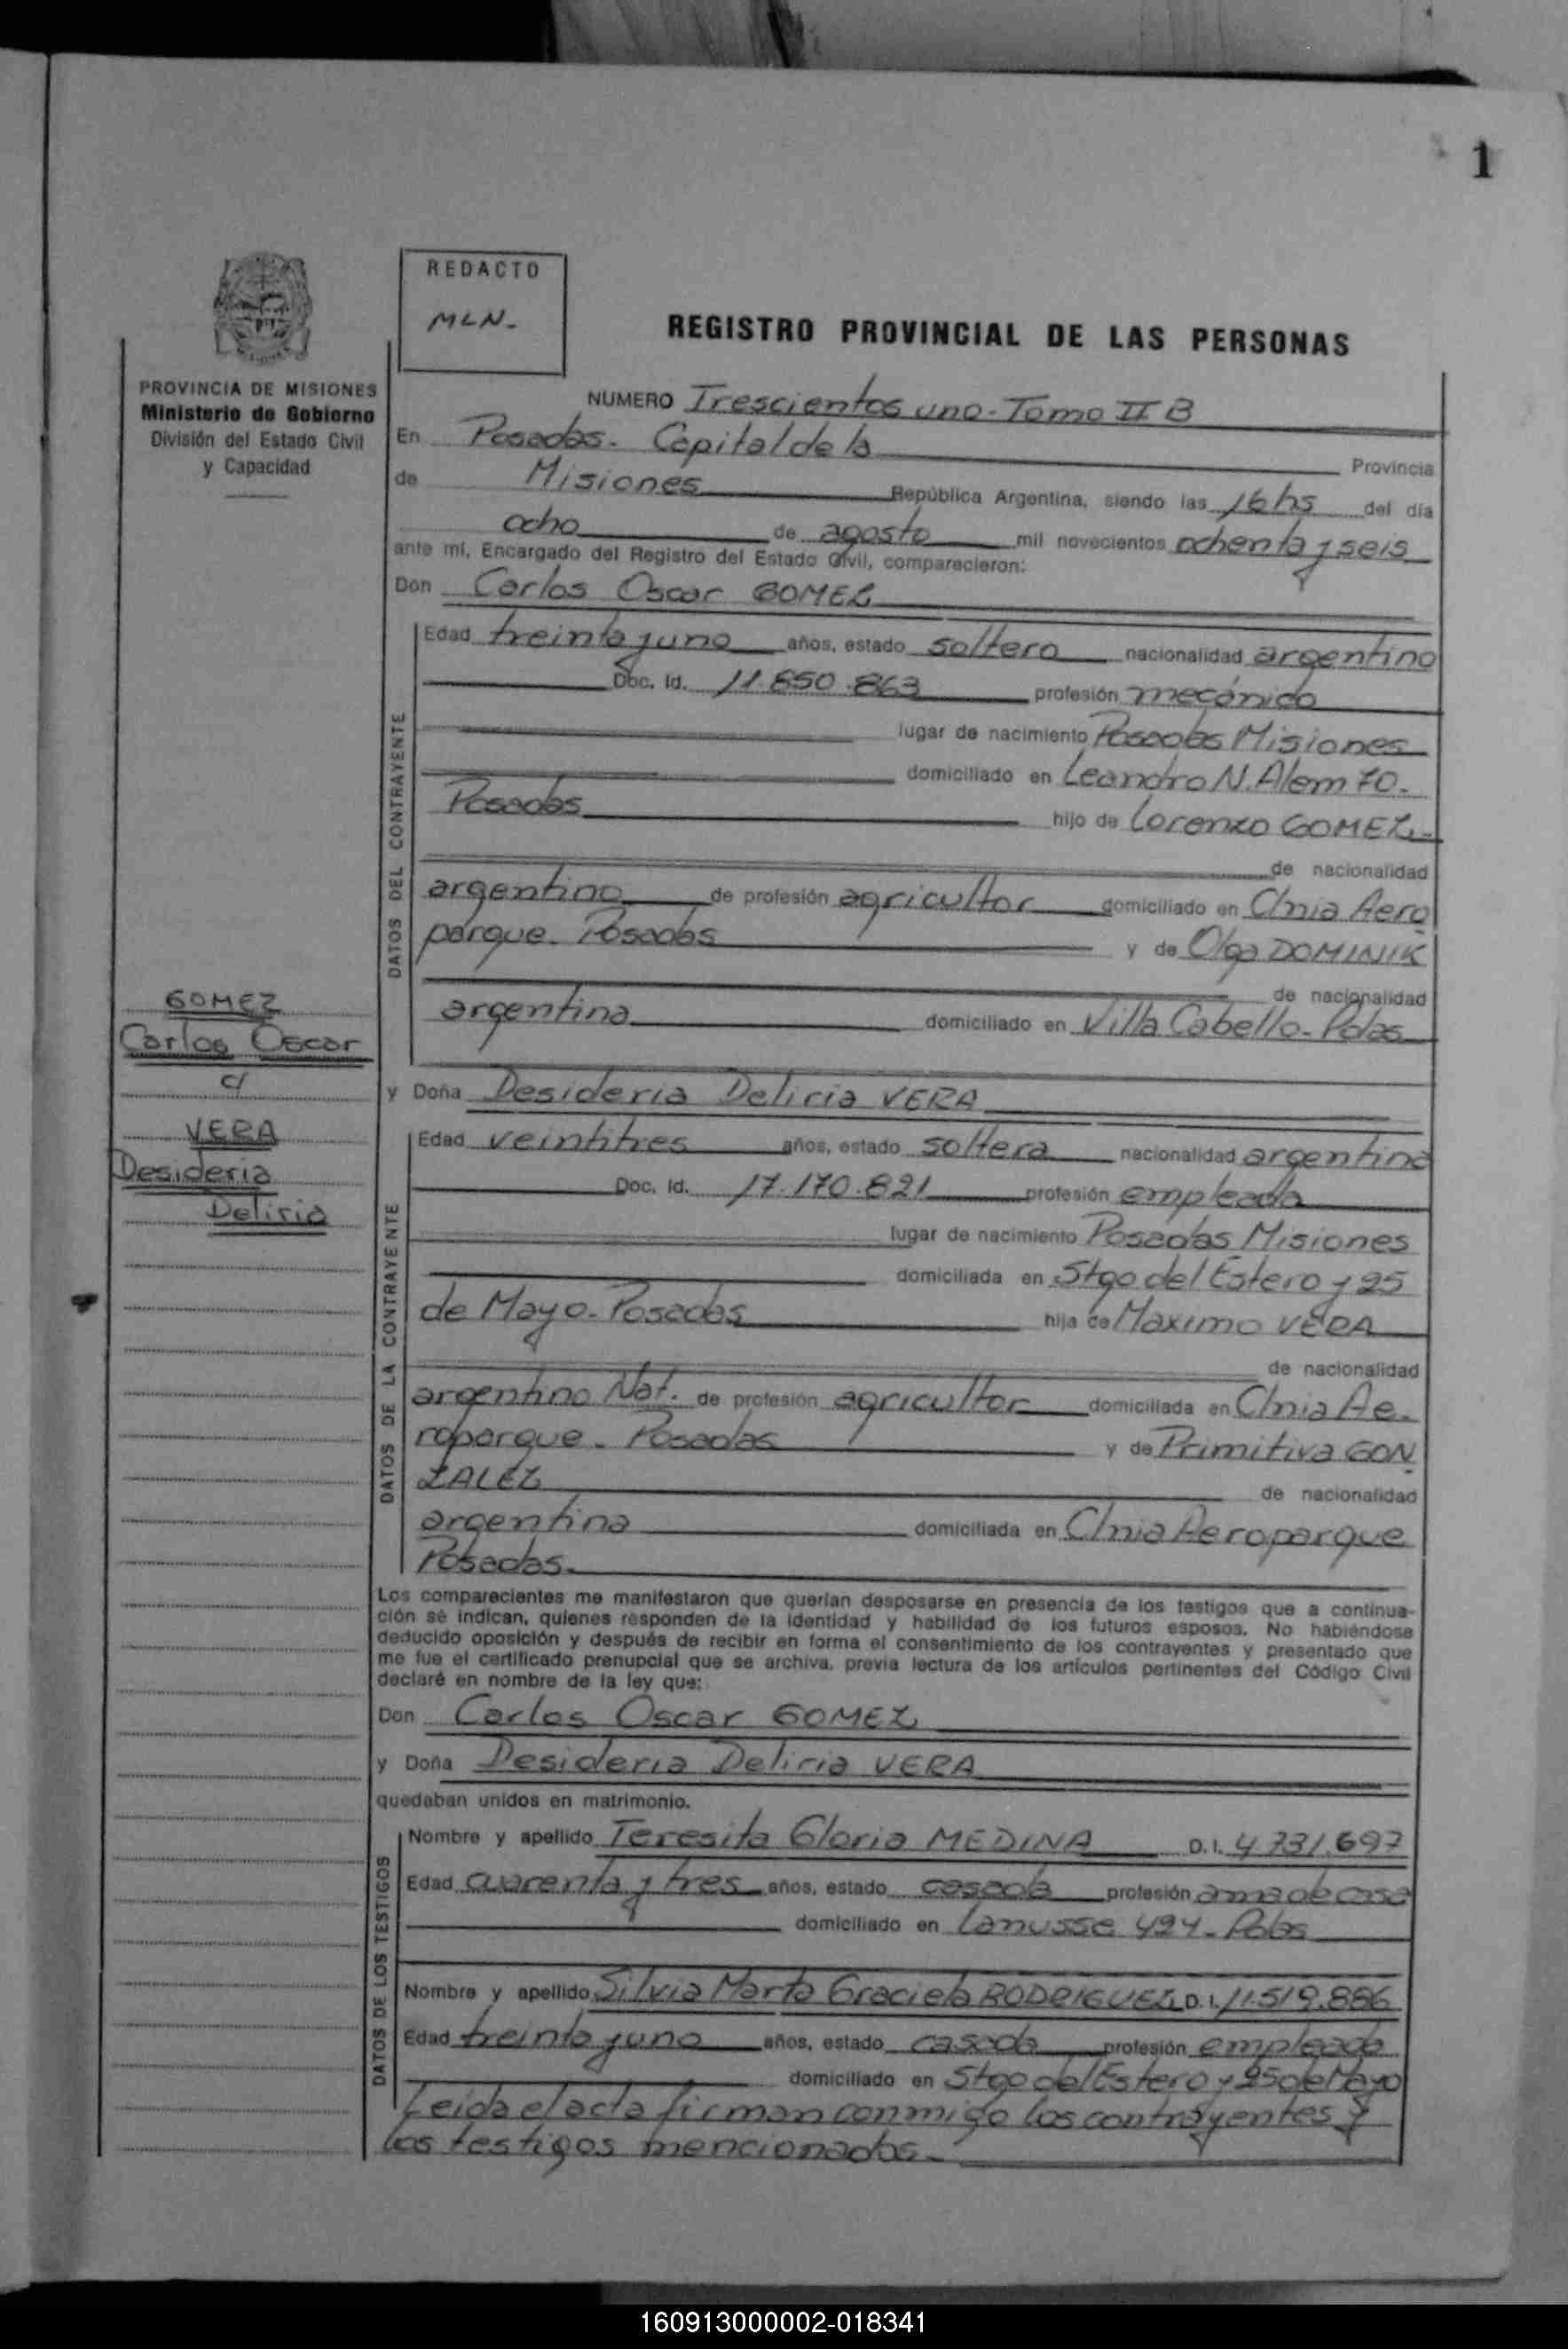 1
REDACTO
MLN-
REGISTRO PROVINCIAL DE LAS PERSONAS
PROVINCIA DE MISIONES
Ministerio de Gobierno
División del Estado Civil
y Capacidad
NUMERO Trescientos uno - Tomo II B
En Posadas - Capital de la Provincia
de Misiones República Argentina, siendo las 16 hs del día
ocho de agosto mil novecientos ochenta y seis
ante mí, Encargado del Registro del Estado Civil, comparecieron:
Don Carlos Oscar GOMEZ
Edad treinta y uno años, estado soltero nacionalidad argentino
Doc. Id. 11.850.863 profesión mecánico
lugar de nacimiento Posadas Misiones
domiciliado en Leandro N. Alem 70-
Posadas hijo de Lorenzo GOMEZ-
de nacionalidad
argentino de profesión agricultor domiciliado en Clnia Aero
parque - Posadas y de Olga DOMINIK
de nacionalidad
argentina domiciliado en Villa Cabello - Pdas
DATOS DEL CONTRAYENTE
GOMEZ
Carlos Oscar
c/
VERA
Desideria
Deliria
y Doña Desideria Deliria VERA
Edad veintitres años, estado soltera nacionalidad argentina
Doc. Id. 17.170.821 profesión empleada
lugar de nacimiento Posadas Misiones
domiciliada en Stgo del Estero y 25
de Mayo - Posadas hija de Maximo VERA
de nacionalidad
argentino Nat. de profesión agricultor domiciliada en Clnia Ae-
roparque - Posadas y de Primitiva GON
ZALEZ de nacionalidad
argentina domiciliada en Clnia Aeroparque
Posadas-
DATOS DE LA CONTRAYENTE
Los comparecientes me manifestaron que querían desposarse en presencia de los testigos que a continua-
ción se indican, quienes responden de la identidad y habilidad de los futuros esposos. No habiéndose
deducido oposición y después de recibir en forma el consentimiento de los contrayentes y presentado que
me fue el certificado prenupcial que se archiva, previa lectura de los artículos pertinentes del Código Civil
declaré en nombre de la ley que:
Don Carlos Oscar GOMEZ
y Doña Desideria Deliria VERA
quedaban unidos en matrimonio.
Nombre y apellido Teresita Gloria MEDINA D. I. 4.731.697
Edad cuarenta y tres años, estado casada profesión ama de casa
domiciliado en Lanusse 424 - Pdas
Nombre y apellido Silvia Marta Graciela RODRIGUEZ D. I. 11.519.886
Edad treinta y uno años, estado casada profesión empleada
domiciliado en Stgo del Estero y 25 de Mayo
DATOS DE LOS TESTIGOS
Leida el acta firman conmigo los contrayentes y
los testigos mencionados-
160913000002-018341